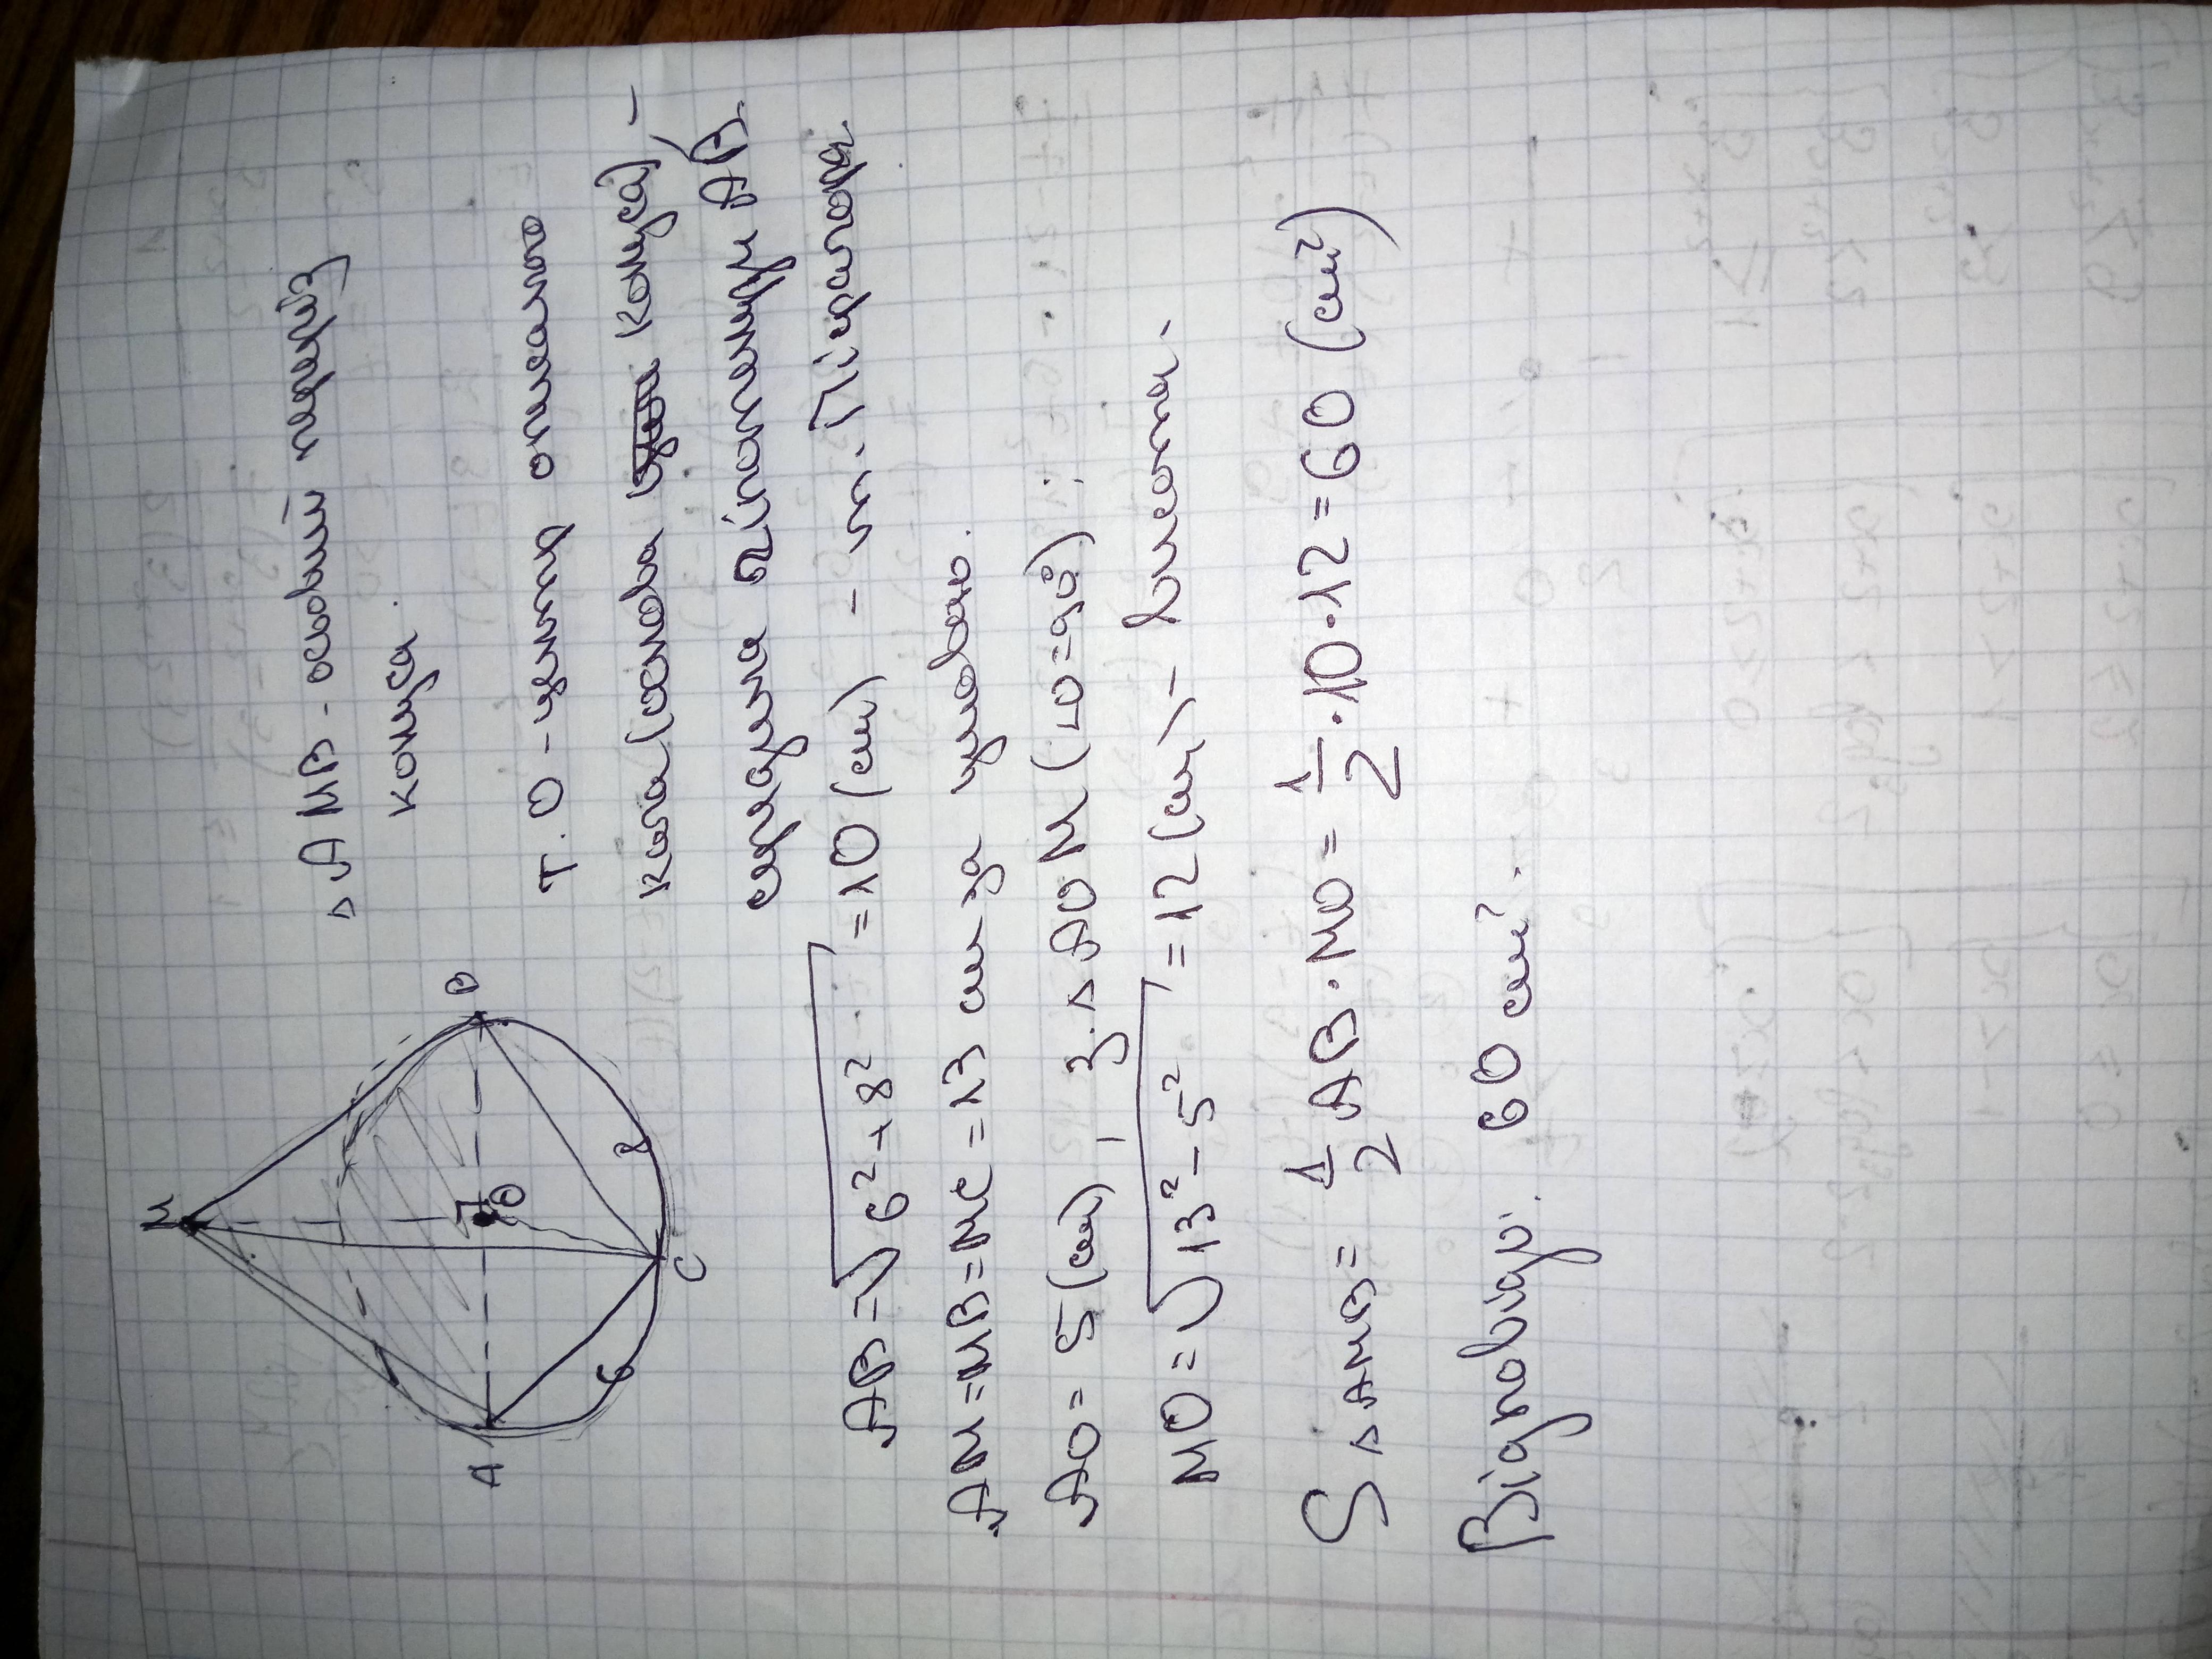 M
A
B
O
C
6
8
△ AMB - осьовий переріз
конуса.
т. O - центр описаного
кола (основа конуса) -
середина гіпотенузи AB.
AB = √6² + 8² = 10 (см) - т. Піфагора.
AM = MB = MC = 13 см за умовою.
AO = 5 (см), з △ AOM (∠O = 90°):
MO = √13² - 5² = 12 (см) - висота.
S △ AMB = 1/2 AB · MO = 1/2 · 10 · 12 = 60 (см²)
Відповідь: 60 см².